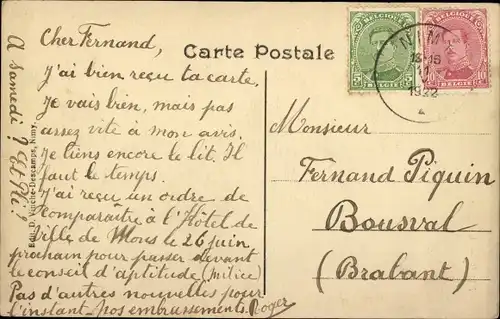 Cher Fernand,
J'ai bien reçu ta carte,
Je vais bien, mais pas
assez vite à mon avis.
Je tiens encore le lit. Il
faut le temps.
J'ai reçu un ordre de
comparaître à l'Hôtel de
Ville de Mons le 26 juin
prochain pour passer devant
le conseil d'aptitude (milice)
Pas d'autres nouvelles pour
l'instant. nos embrassements. Roger
A samedi?
Edit. D. Descamps, Nimy.
Carte Postale
BELGIQUE
5 5
BELGIE
BELGIQUE
10 10
BELGIE
NIMY
13-15
1922
Monsieur
Fernand Piquin
Bousval
(Brabant)